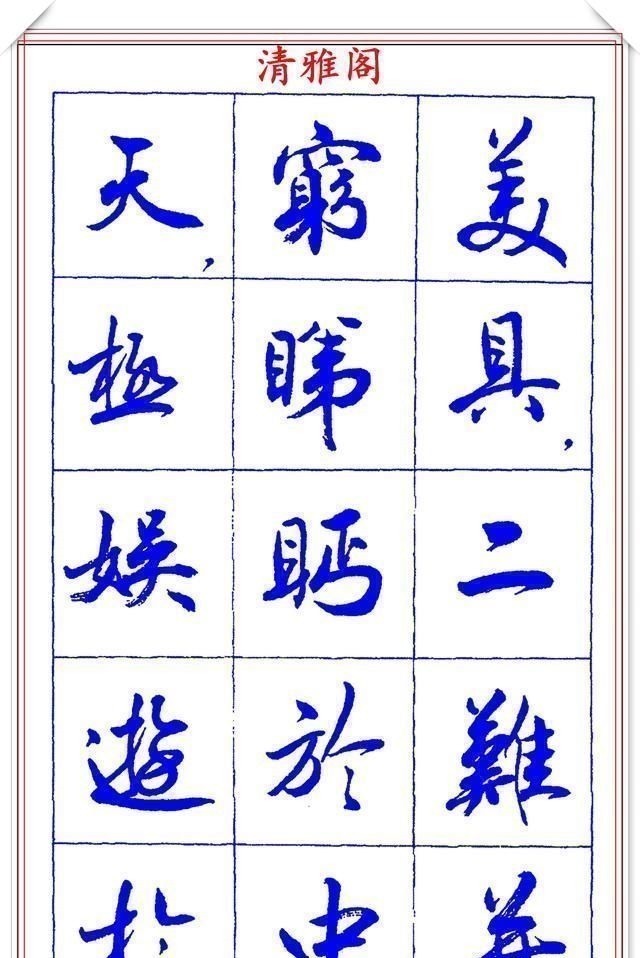 清雅阁
美具,二難并
窮睇眄於中
天,極娱遊於